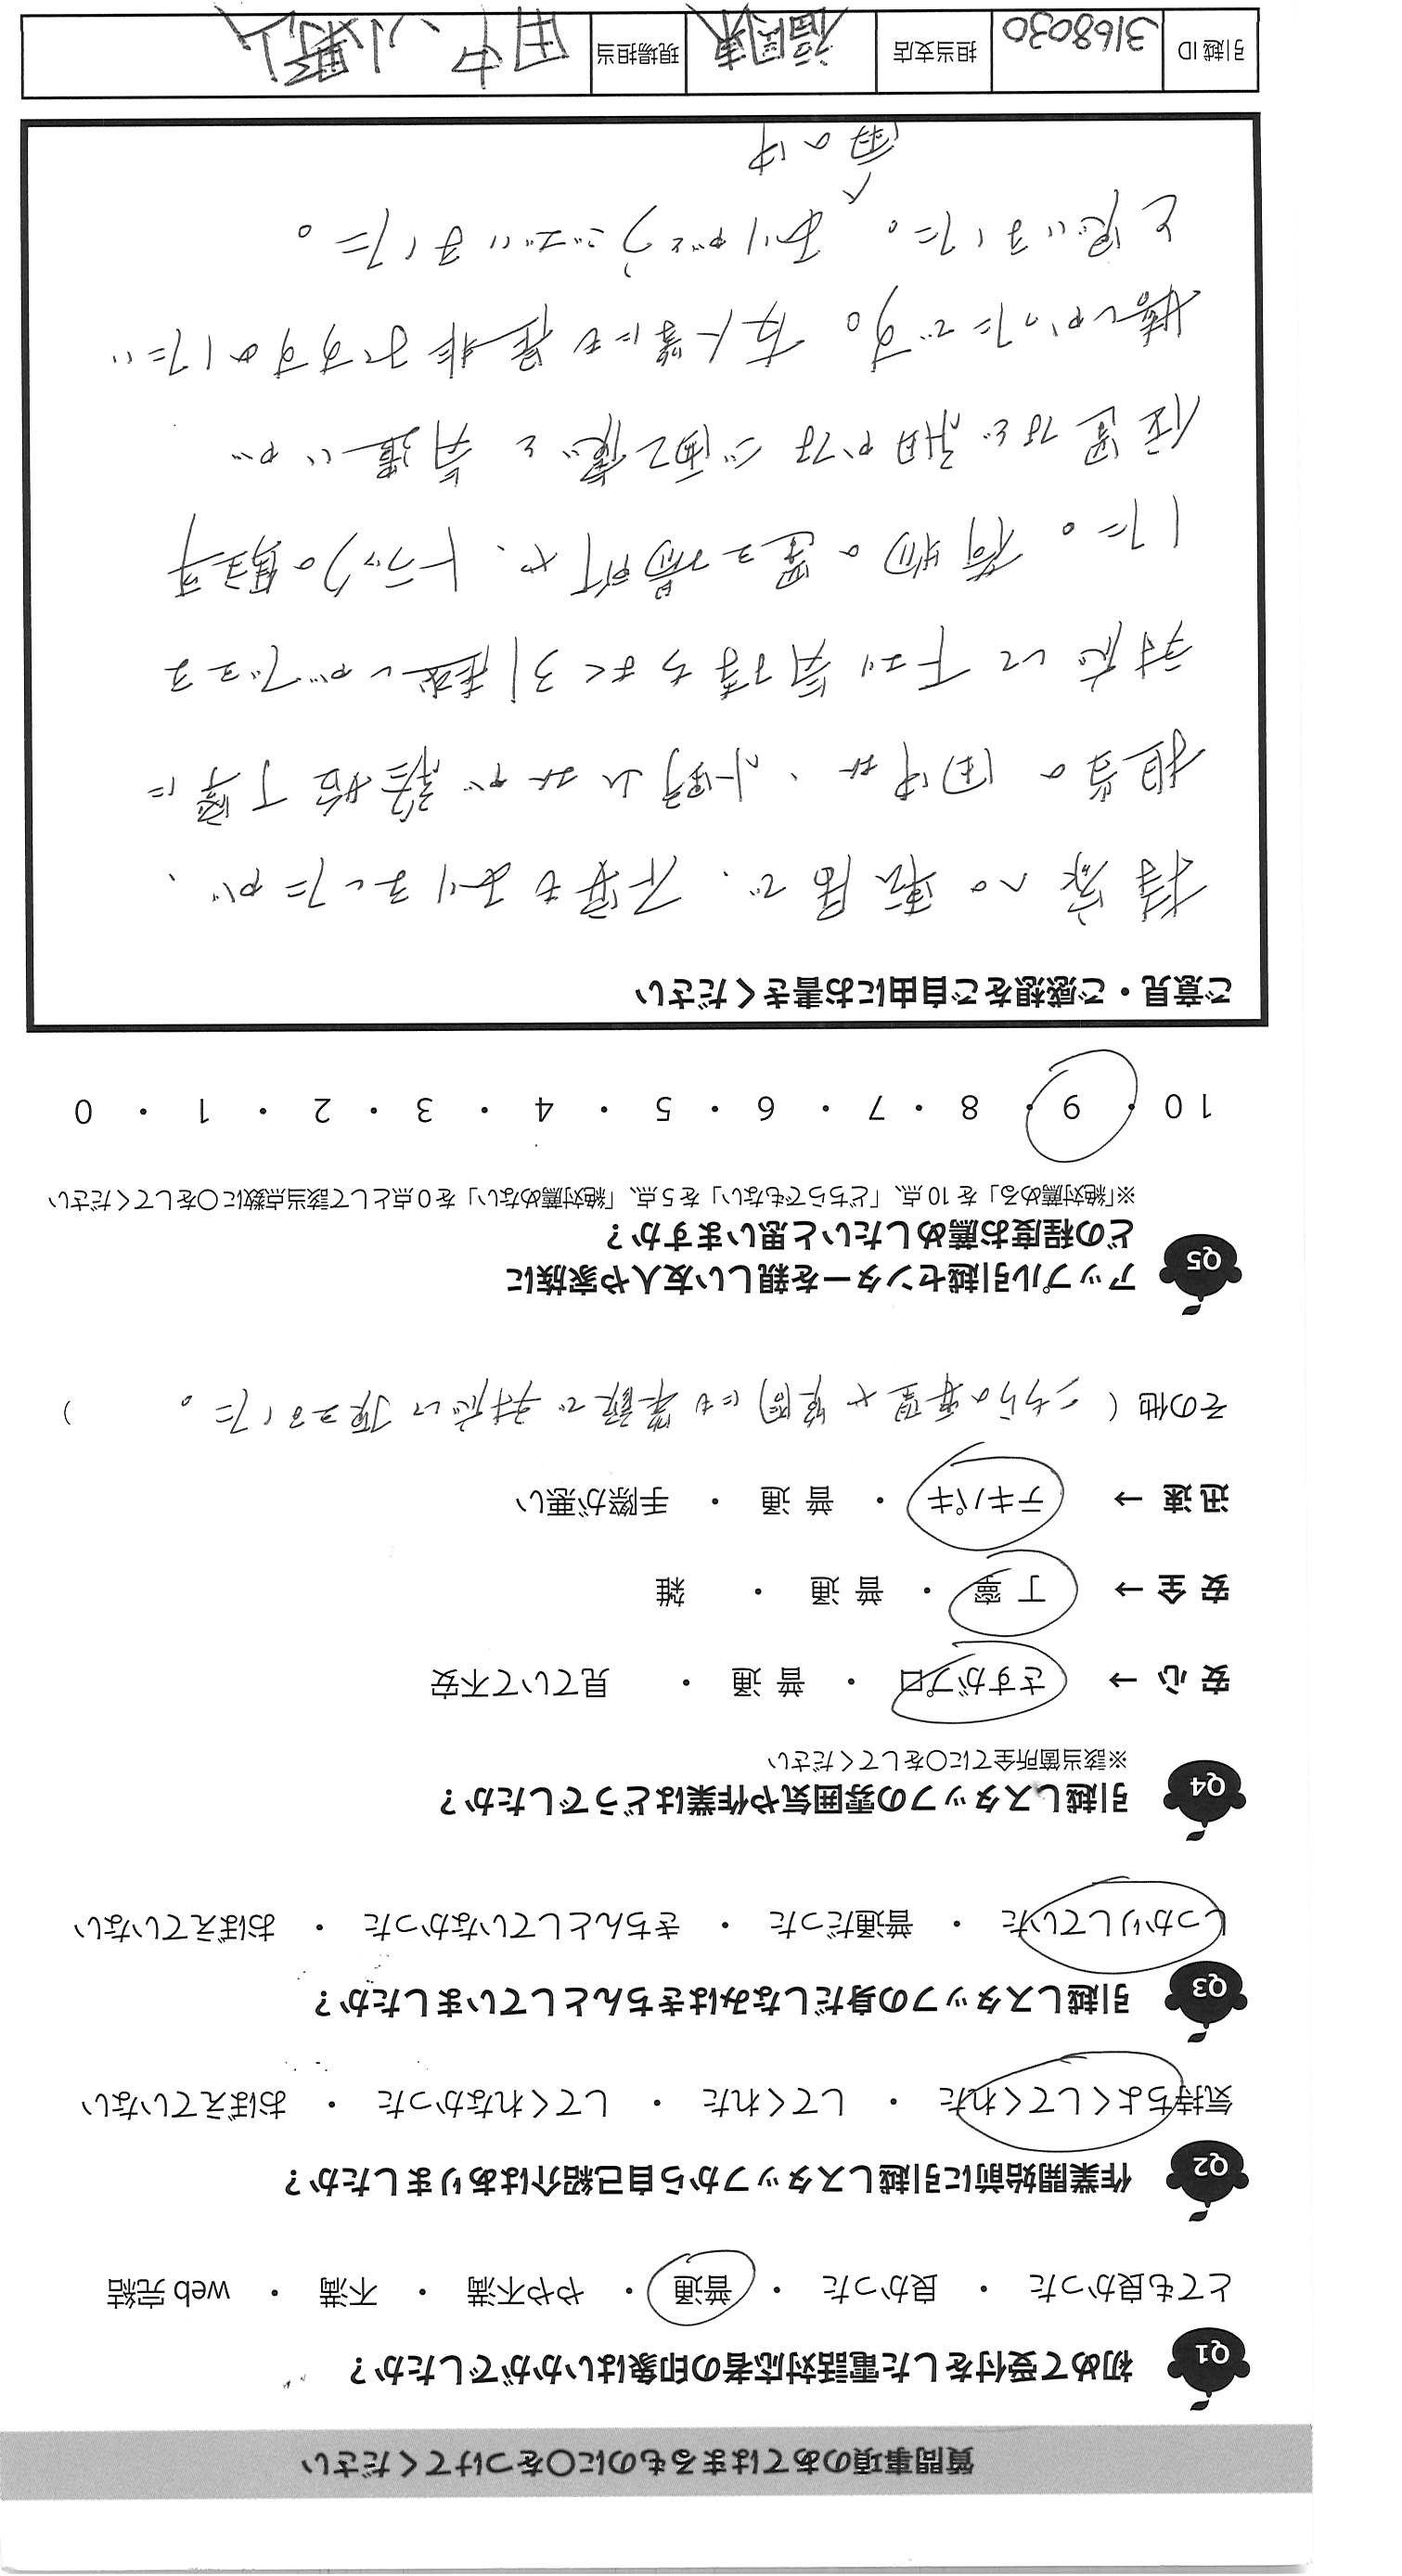 質問事項のあてはまるものに○をつけてください
Q1 初めて受付をした電話対応者の印象はいかがでしたか？
とても良かった ・ 良かった ・ 普通 ・ やや不満 ・ 不満 ・ web 完結
Q2 作業開始前に引越しスタッフから自己紹介はありましたか？
気持ちよくしてくれた ・ してくれた ・ してくれなかった ・ おぼえていない
Q3 引越しスタッフの身だしなみはきちんとしていましたか？
しっかりしていた ・ 普通だった ・ きちんとしていなかった ・ おぼえていない
Q4 引越しスタッフの雰囲気や作業はどうでしたか？
※該当箇所全てに○をしてください
安 心 → さすがプロ ・ 普 通 ・ 見ていて不安
安 全 → 丁 寧 ・ 普 通 ・ 雑
迅 速 → テキパキ ・ 普 通 ・ 手際が悪い
その他 ( こちらの希望や質問にも笑顔で対応し頂きました。 )
Q5 アップル引越センターを親しい友人や家族に
どの程度お薦めしたいと思いますか？
※「絶対薦める」を 10 点、「どちらでもない」を 5 点、「絶対薦めない」を 0 点として該当点数に○をしてください
10 ・ 9 ・ 8 ・ 7 ・ 6 ・ 5 ・ 4 ・ 3 ・ 2 ・ 1 ・ 0
ご意見・ご感想をご自由にお書きください
持家への転居で、不安もありましたが、
担当の田中サン、小野山サンが終始丁寧に
対応して下さり気持ちよく引越しができま
した。荷物の置き場所や、トラックの駐車
位置など細かなご配慮と気遣いが
嬉しかったです。友人等にも是非おすすめしたい
と思いました。ありがとうございました。
雨の中
引越 ID 3168030 担当支店 福岡東 現場担当 田中 小野山